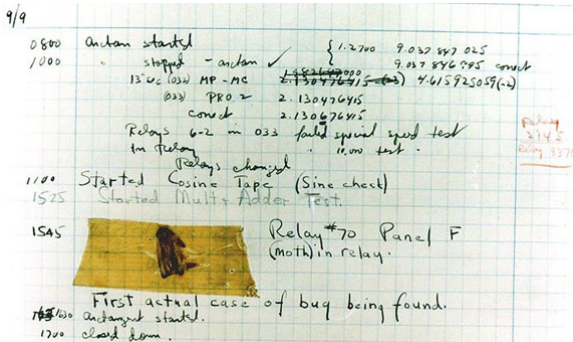 9/9
0800 Antan started
1000 " stopped - antan ✓ { 1.2700 9.037 847 025
9.037 846 995 conect
13"uc (032) MP-MC 2.130476415 4.615925059(-2)
(033) PRO 2 2.130476415
conect 2.130676415
Relays 6-2 in 033 failed special speed test
In Relay " 10,000 test.
Relay
2145
Relay 337
Relays changed
1100 Started Cosine Tape (Sine check)
1525 Started Mult + Adder Test.
1545 Relay #70 Panel F
(moth) in relay.
First actual case of bug being found.
1630 antangent started.
1700 closed down.